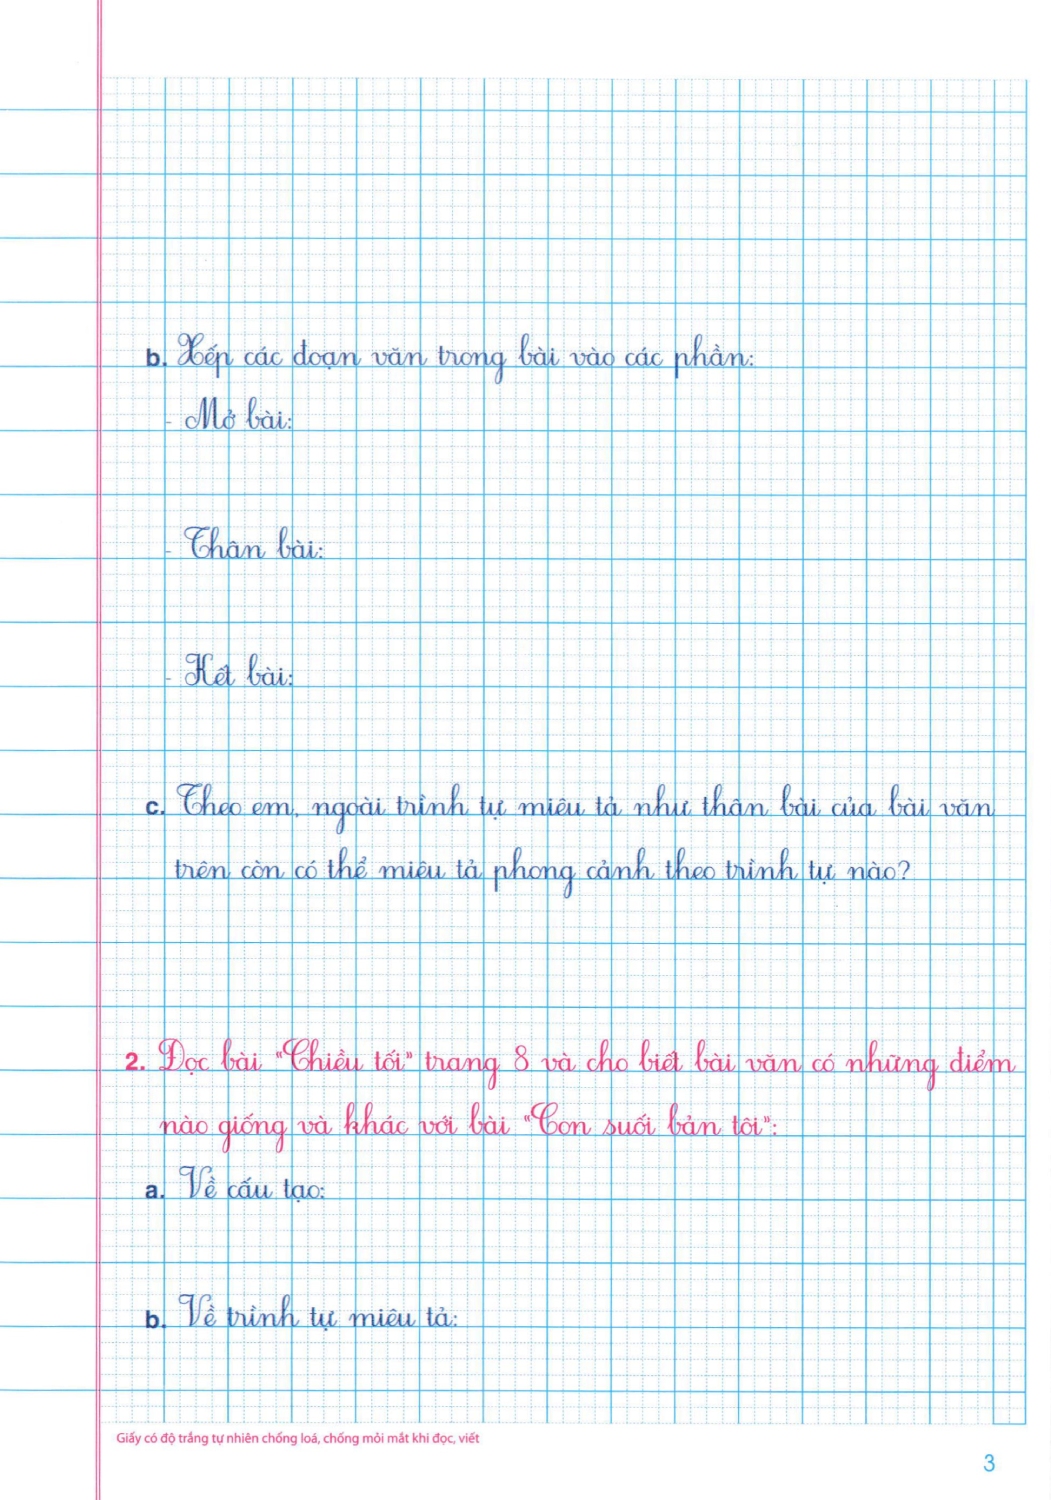 b. Xếp các đoạn văn trong bài vào các phần:
- Mở bài:
- Thân bài:
- Kết bài:
c. Theo em, ngoài trình tự miêu tả như thân bài của bài văn
trên còn có thể miêu tả phong cảnh theo trình tự nào?
2. Đọc bài "Chiều tối" trang 8 và cho biết bài văn có những điểm
nào giống và khác với bài "Con suối bản tôi":
a. Về cấu tạo:
b. Về trình tự miêu tả:
Giấy có độ trắng tự nhiên chống loá, chống mỏi mắt khi đọc, viết
3